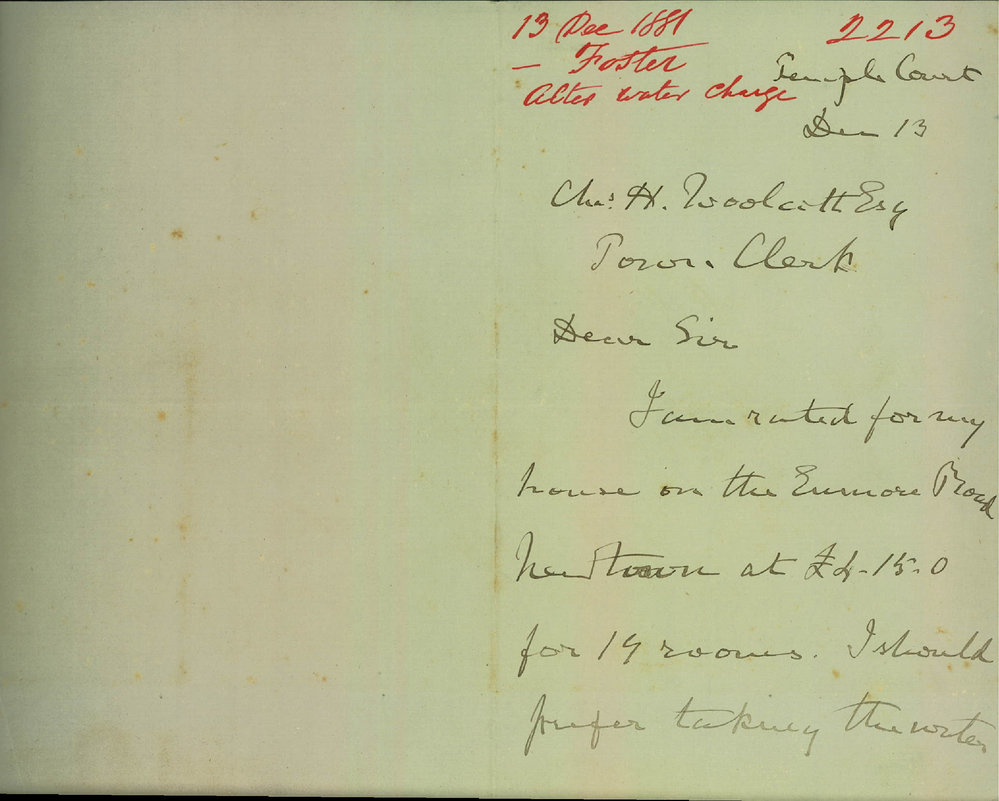 13 Dec 1881
2213
— Foster
Alter water charge
Temple Court
Dec 13
Chas. H. Woolcott Esq
Town Clerk
Dear Sir
I am rated for my
house on the Enmore Road
Newtown at £4-15-0
for 19 rooms. I should
prefer taking the water